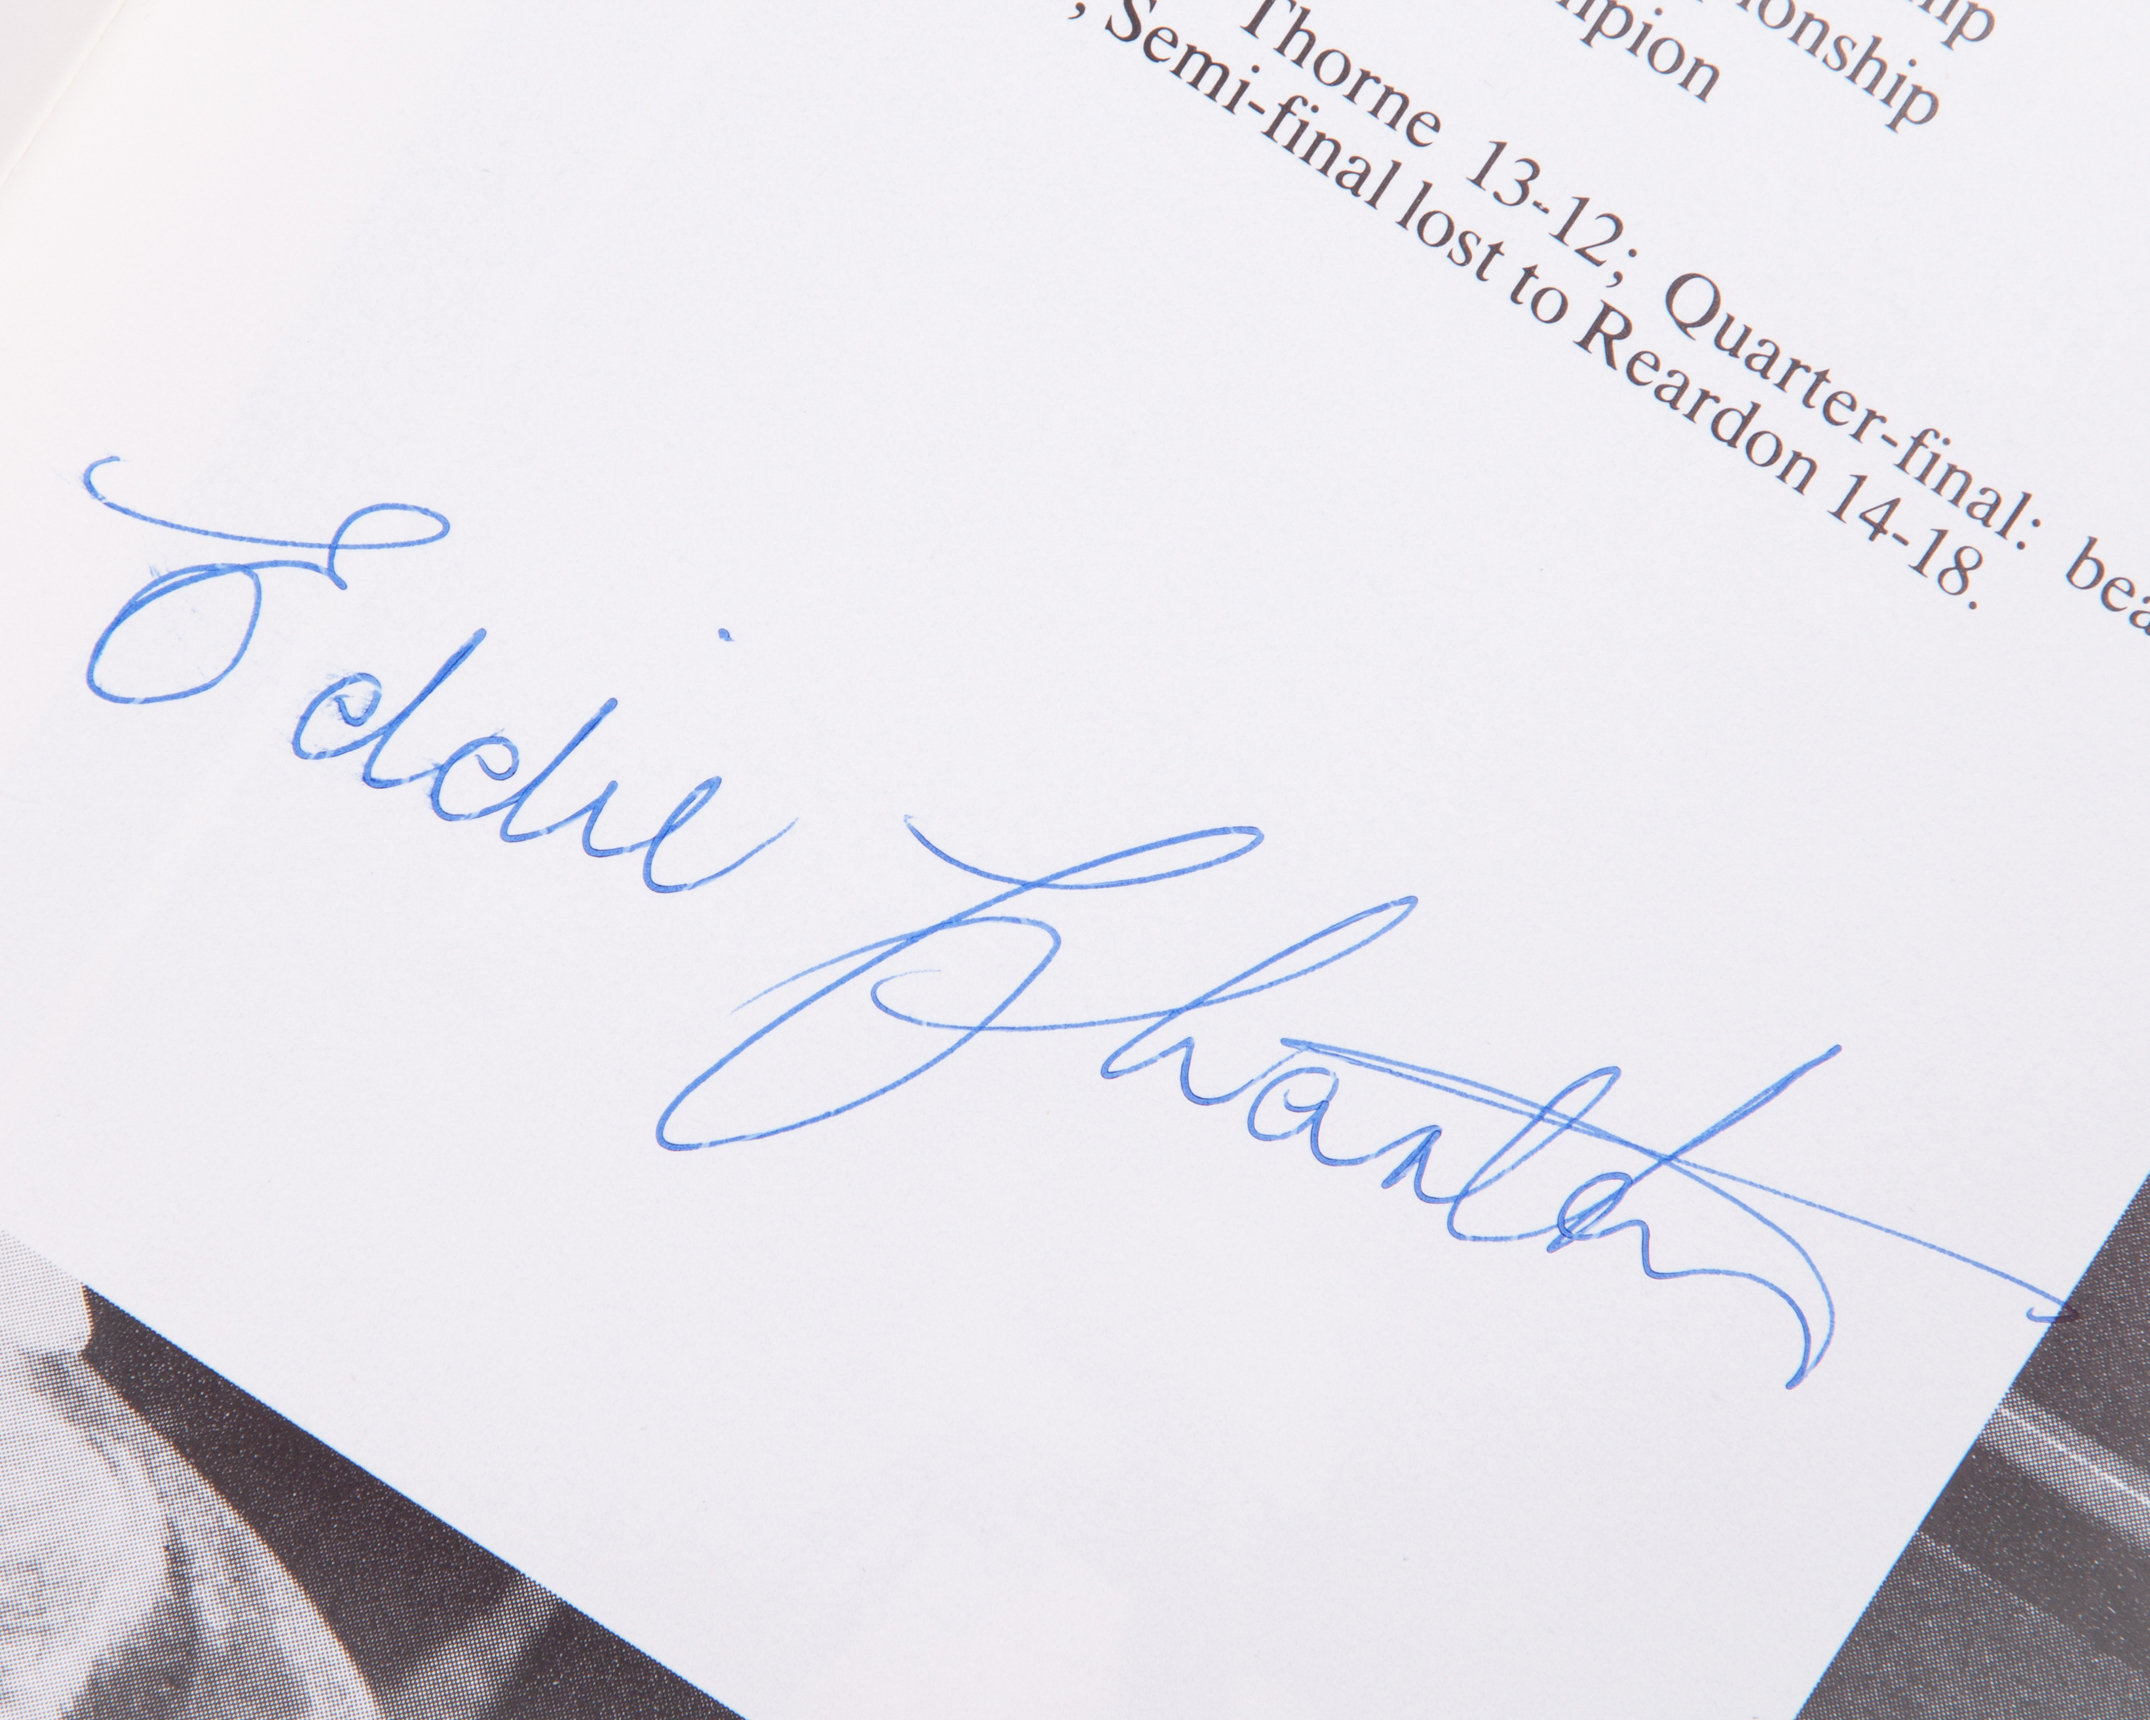 ip
ionship
mpion
Thorne 13-12; Quarter-final: bea
, Semi-final lost to Reardon 14-18.
Eddie Charlton